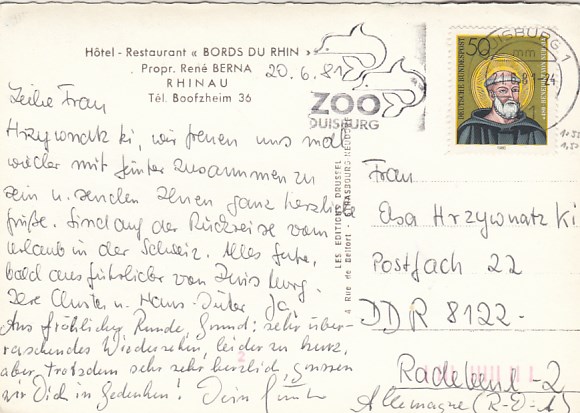 Hôtel - Restaurant « BORDS DU RHIN »
Propr. René BERNA
RHINAU
Tél. Boofzheim 36
20.6.81
ZOO
DUISBURG
DUISBURG 1
mm
21.6.81-24
50
DEUTSCHE BUNDESPOST
1980
LES EDITIONS DRUSSEL
4 Rue de Belfort STRASBOURG-NEUDORF
Liebe Frau
Hrzywnatzki, wir freuen uns mal
wieder mit Günter zusammen zu
sein u. senden Ihnen ganz herzliche
Grüße. Sind auf der Rückreise vom
Urlaub in der Schweiz. Alles Gute,
bald ausführlicher von Duisburg.
Ihre Christa u. Hans-Dieter
Aus fröhlicher Runde, Grund: sehr über-
raschendes Wiedersehen, leider zu kurz,
aber trotzdem sehr sehr herzlich, grüssen
wir Dich in Gedenken! Dein Günter
Frau
Elsa Hrzywnatzki
Postfach 22
DDR 8122-
Radebeul-2
Allemagne (R-D-A)